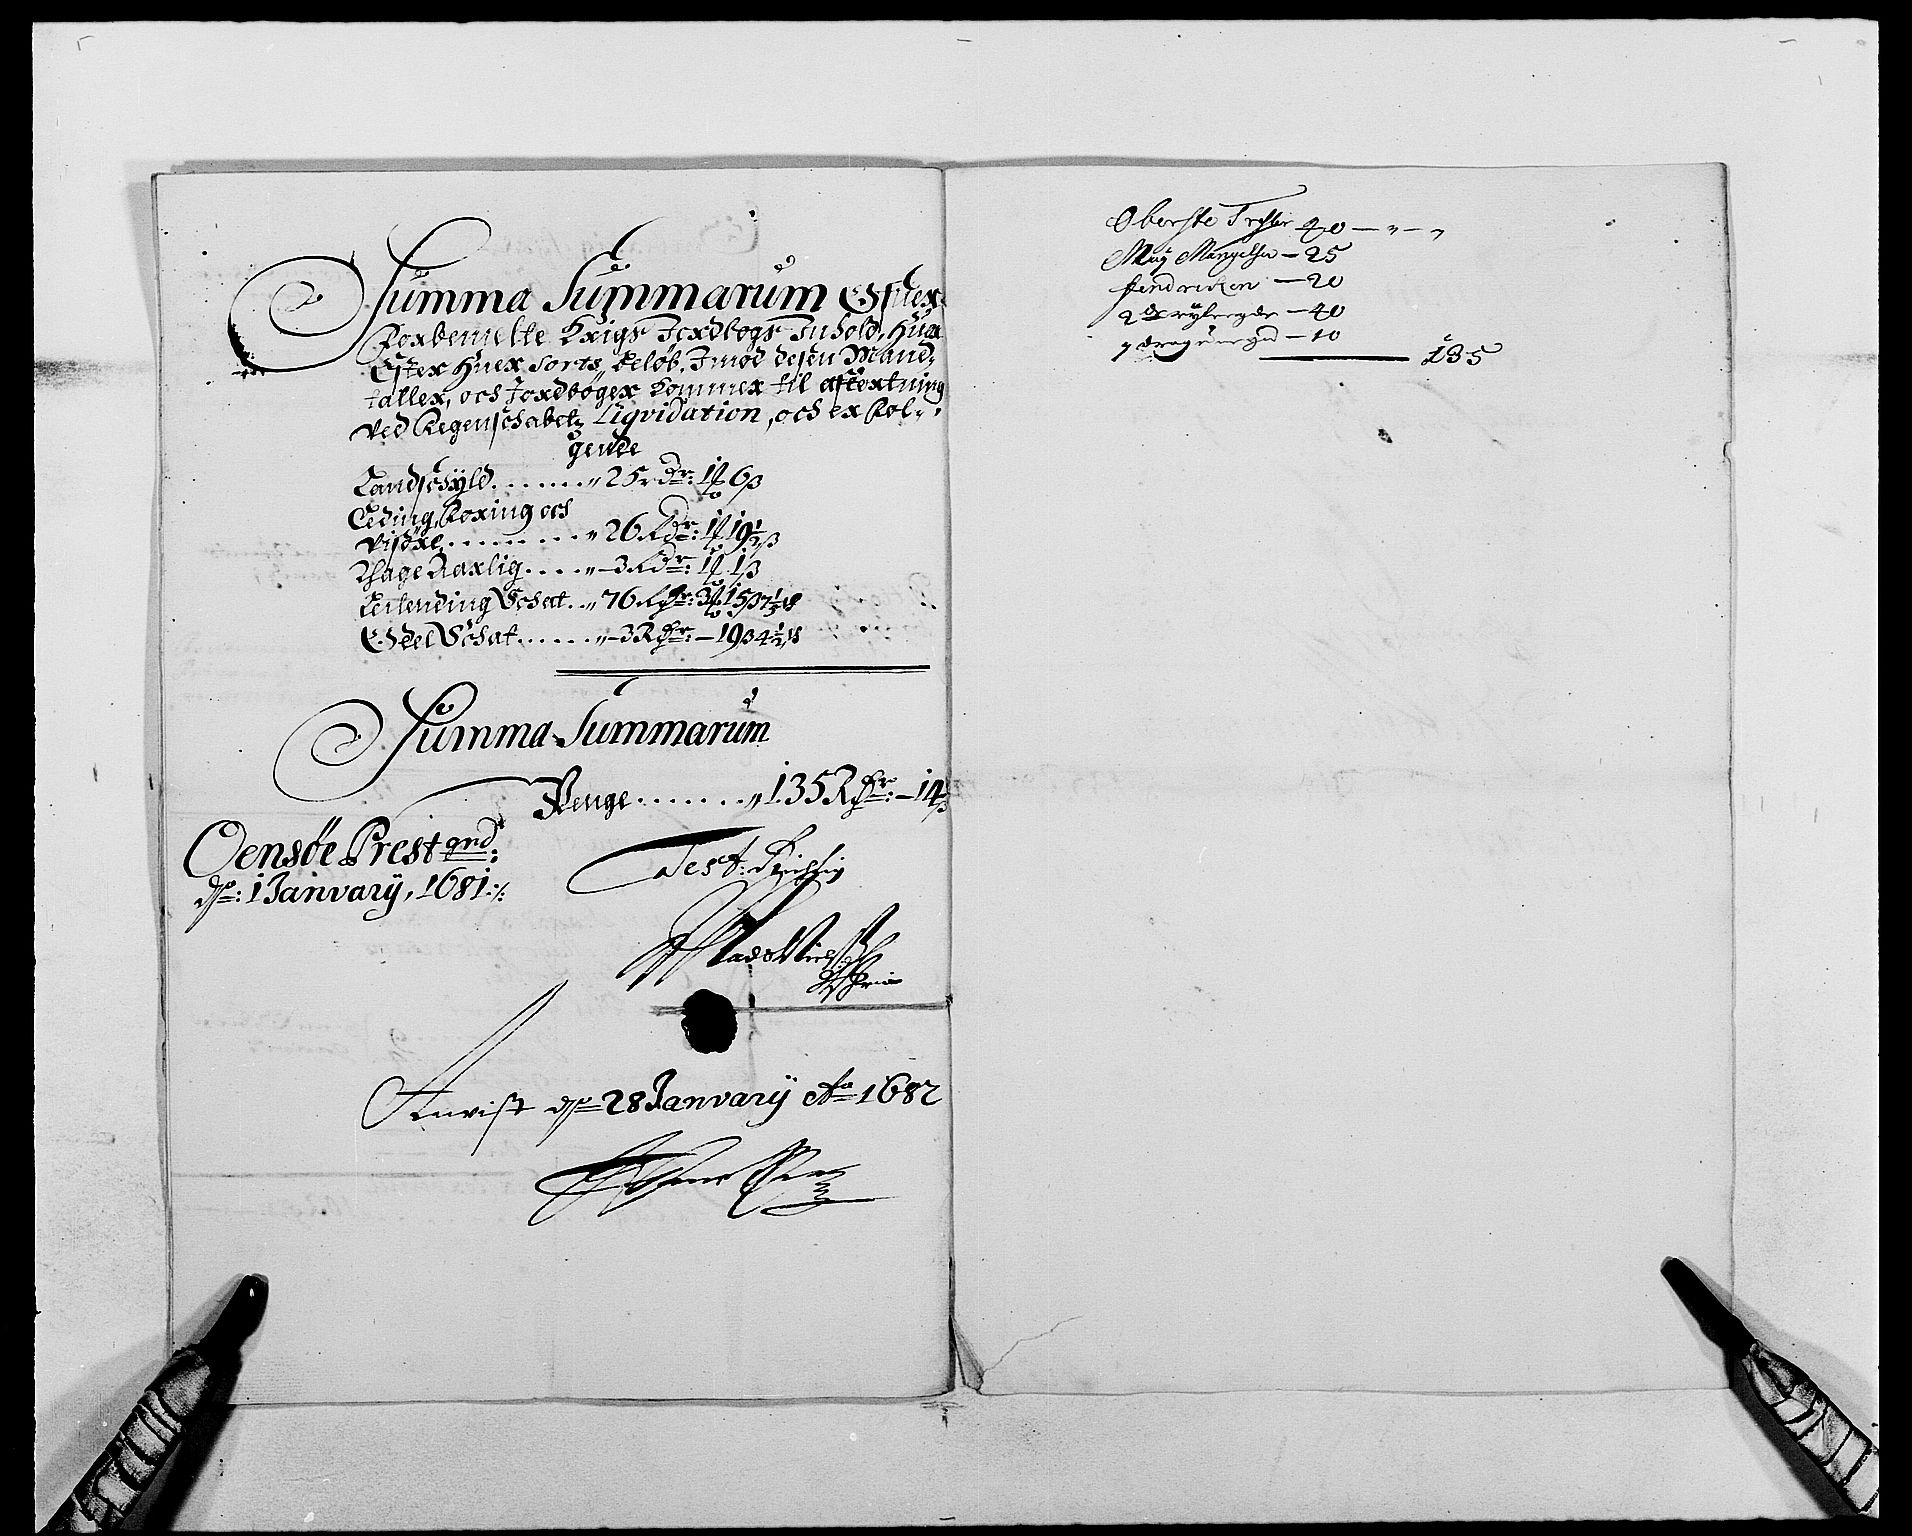 Summa Summarum Efter
forbemelte Krigs Jordbogs Inhold, Hues
Efter Huer Sorts beløb, Imod desen Mand„
taller, och Jordbøger kommer til afkortning
ved Regenschabetz Liqvidation, och er føl„
gende
Landschÿld . . . . . . „ 25 rdr: 1 6 ß
Leding, Foring och
Visøre . . . . . . . . „ 26 Rdr: 1 19½ ß
Thage Raxlig . . . . „ 3 Rdr: 1 1 ß
Leilending Schatt . . „ 76 Rdr: 3 15 ß 7½
Odel Schat . . . . . . „ 3 Rdr: – 19 ß 4½
Summa Summarum
Penge . . . . . . . „ 135 Rdr: – 14 ß
Oensøe Prestgrd:
dn: 1 Janvarÿ, 1681 ./.
Test. Rigtig
Mads
Anvist dn 28 Janvarÿ Ao 1682
Oberste 40 — „ — „
Maj Mangelsen — 25
fendricken — 20
2 — 40
7 — 10
135